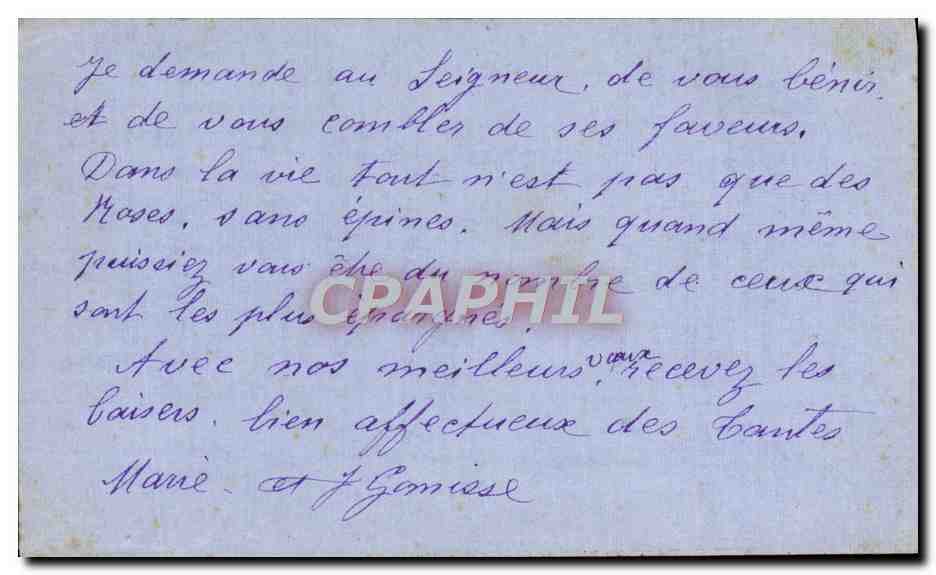 Je demande au Seigneur, de vous bénir,
et de vous combler de ses faveurs.
Dans la vie tout n'est pas que des
Roses, sans épines. Mais quand même
puissiez vous être du nombre de ceux qui
sont les plus épargnés.
CPAPHIL
Avec nos meilleurs vœux, recevez les
baisers, bien affectueux des Tantes
Marie et J Gonisse